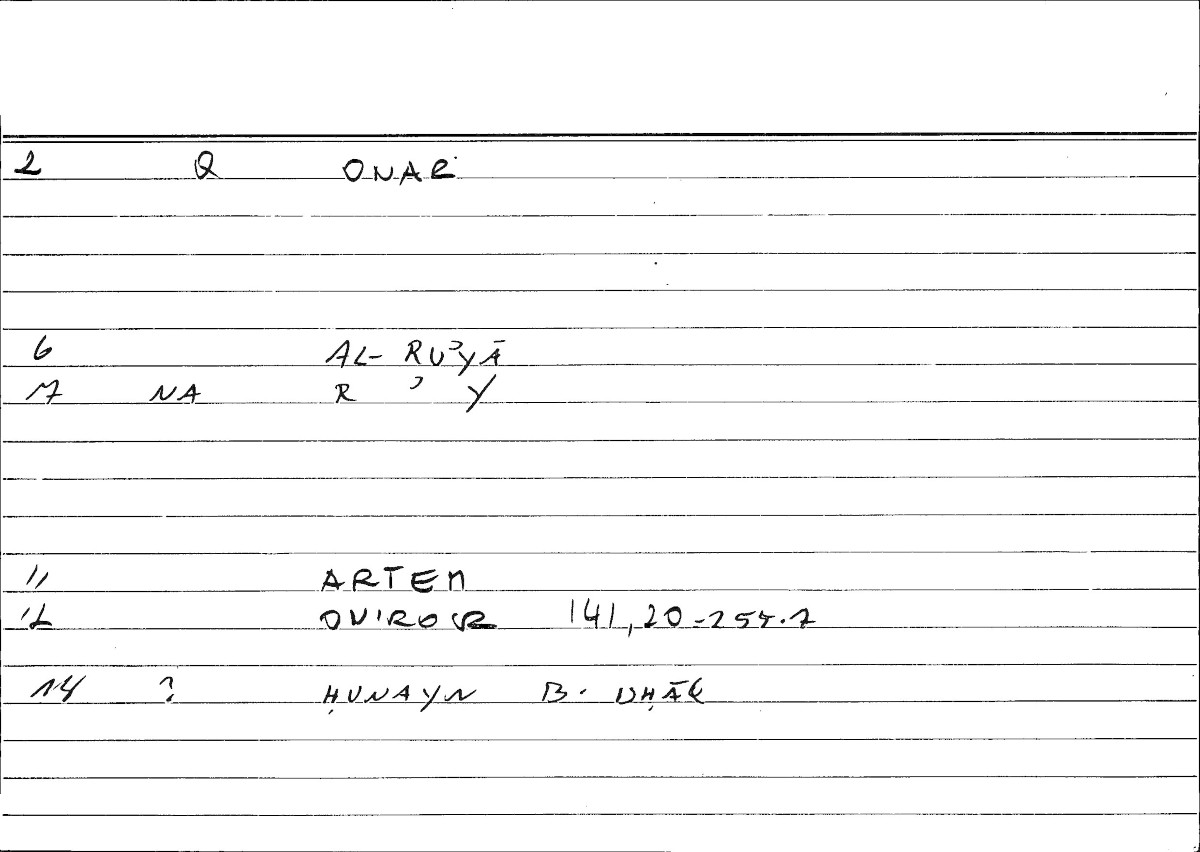 2 Q ONAR
6 AL-RUʾYĀ
7 NA R ʾ Y
11 ARTEM
12 ONIROCR 141,20-255.7
14 ? ḤUNAYN B. ISḤĀQ